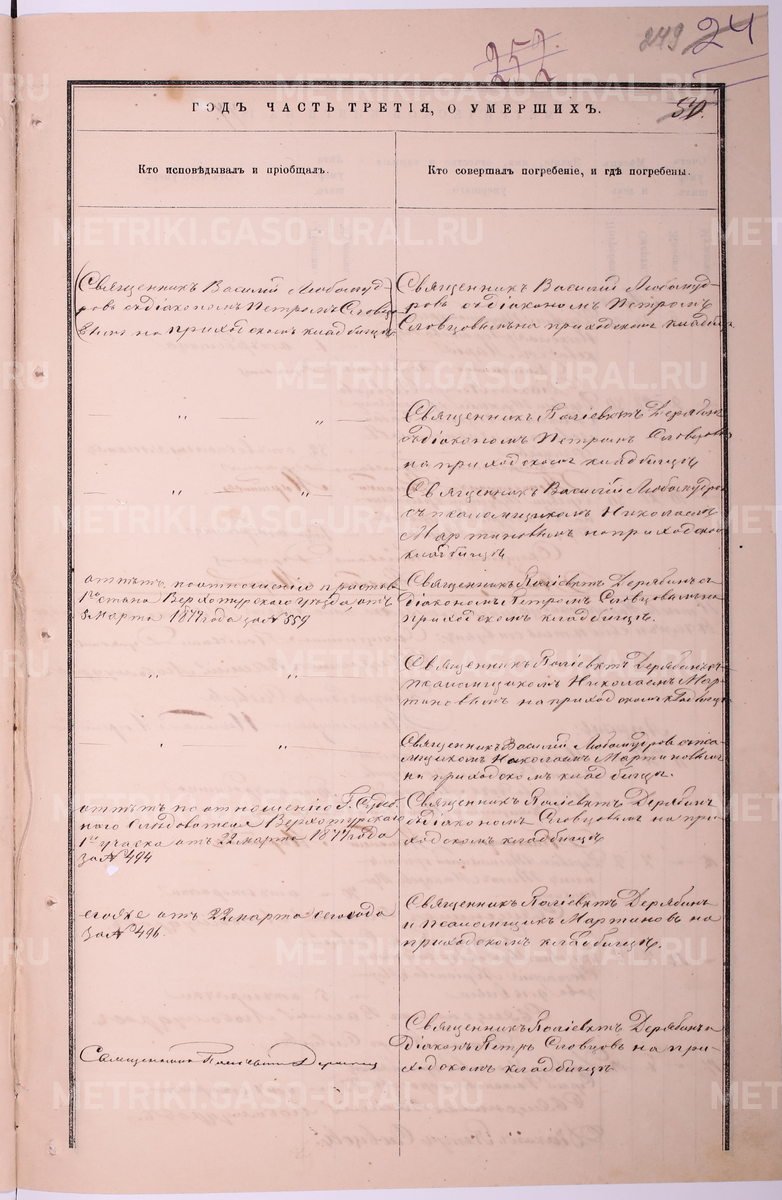 252
249
24
ГОДЪ ЧАСТЬ ТРЕТІЯ, О УМЕРШИХЪ.
50.
Кто исповѣдывалъ и пріобщалъ.
Кто совершалъ погребеніе, и гдѣ погребены.
Священникъ Василій Любомуд-
ровъ съ діакономъ Петромъ Словцо-
вымъ на приходскомъ кладбищѣ
Священникъ Василій Любомуд-
ровъ съ діакономъ Петромъ
Словцовымъ на приходскомъ кладбищѣ
— „ — „ —
Священникъ Поліевктъ Дерябинъ
съ діакономъ Петромъ Словцовымъ
на приходскомъ кладбищѣ
— „ — „ —
Священникъ Василій Любомудровъ
съ псаломщикомъ Николаемъ
Мартиновымъ на приходскомъ
кладбищѣ
по отношенію пристава
1го стана Верхотурскаго уѣзда, отъ
8 марта 1877 года за № 559
Священникъ Поліевктъ Дерябинъ съ
діакономъ Петромъ Словцовымъ на
приходскомъ кладбищѣ.
„ „
Священникъ Поліевктъ Дерябинъ съ
псаломщикомъ Николаемъ Мар-
тиновымъ на приходскомъ кладбищѣ
„ „
Священникъ Василій Любомудровъ съ пса-
ломщикомъ Николаемъ Мартиновымъ
на приходскомъ кладбищѣ.
по отношенію Г. Судеб-
наго Слѣдователя Верхотурскаго
1го участка отъ 22 марта 1877 года
за № 494
Священникъ Поліевктъ Дерябинъ
съ діакономъ Словцовымъ на при-
ходскомъ кладбищѣ
егоже отъ 22 марта сего года
за № 496.
Священникъ Поліевктъ Дерябинъ
и псаломщикъ Мартиновъ на
приходскомъ кладбищѣ.
Священникъ Поліевктъ Дерябинъ
Священникъ Поліевктъ Дерябинъ и
діаконъ Петръ Словцовъ на при-
ходскомъ кладбищѣ
METRIKI.GASO-URAL.RU